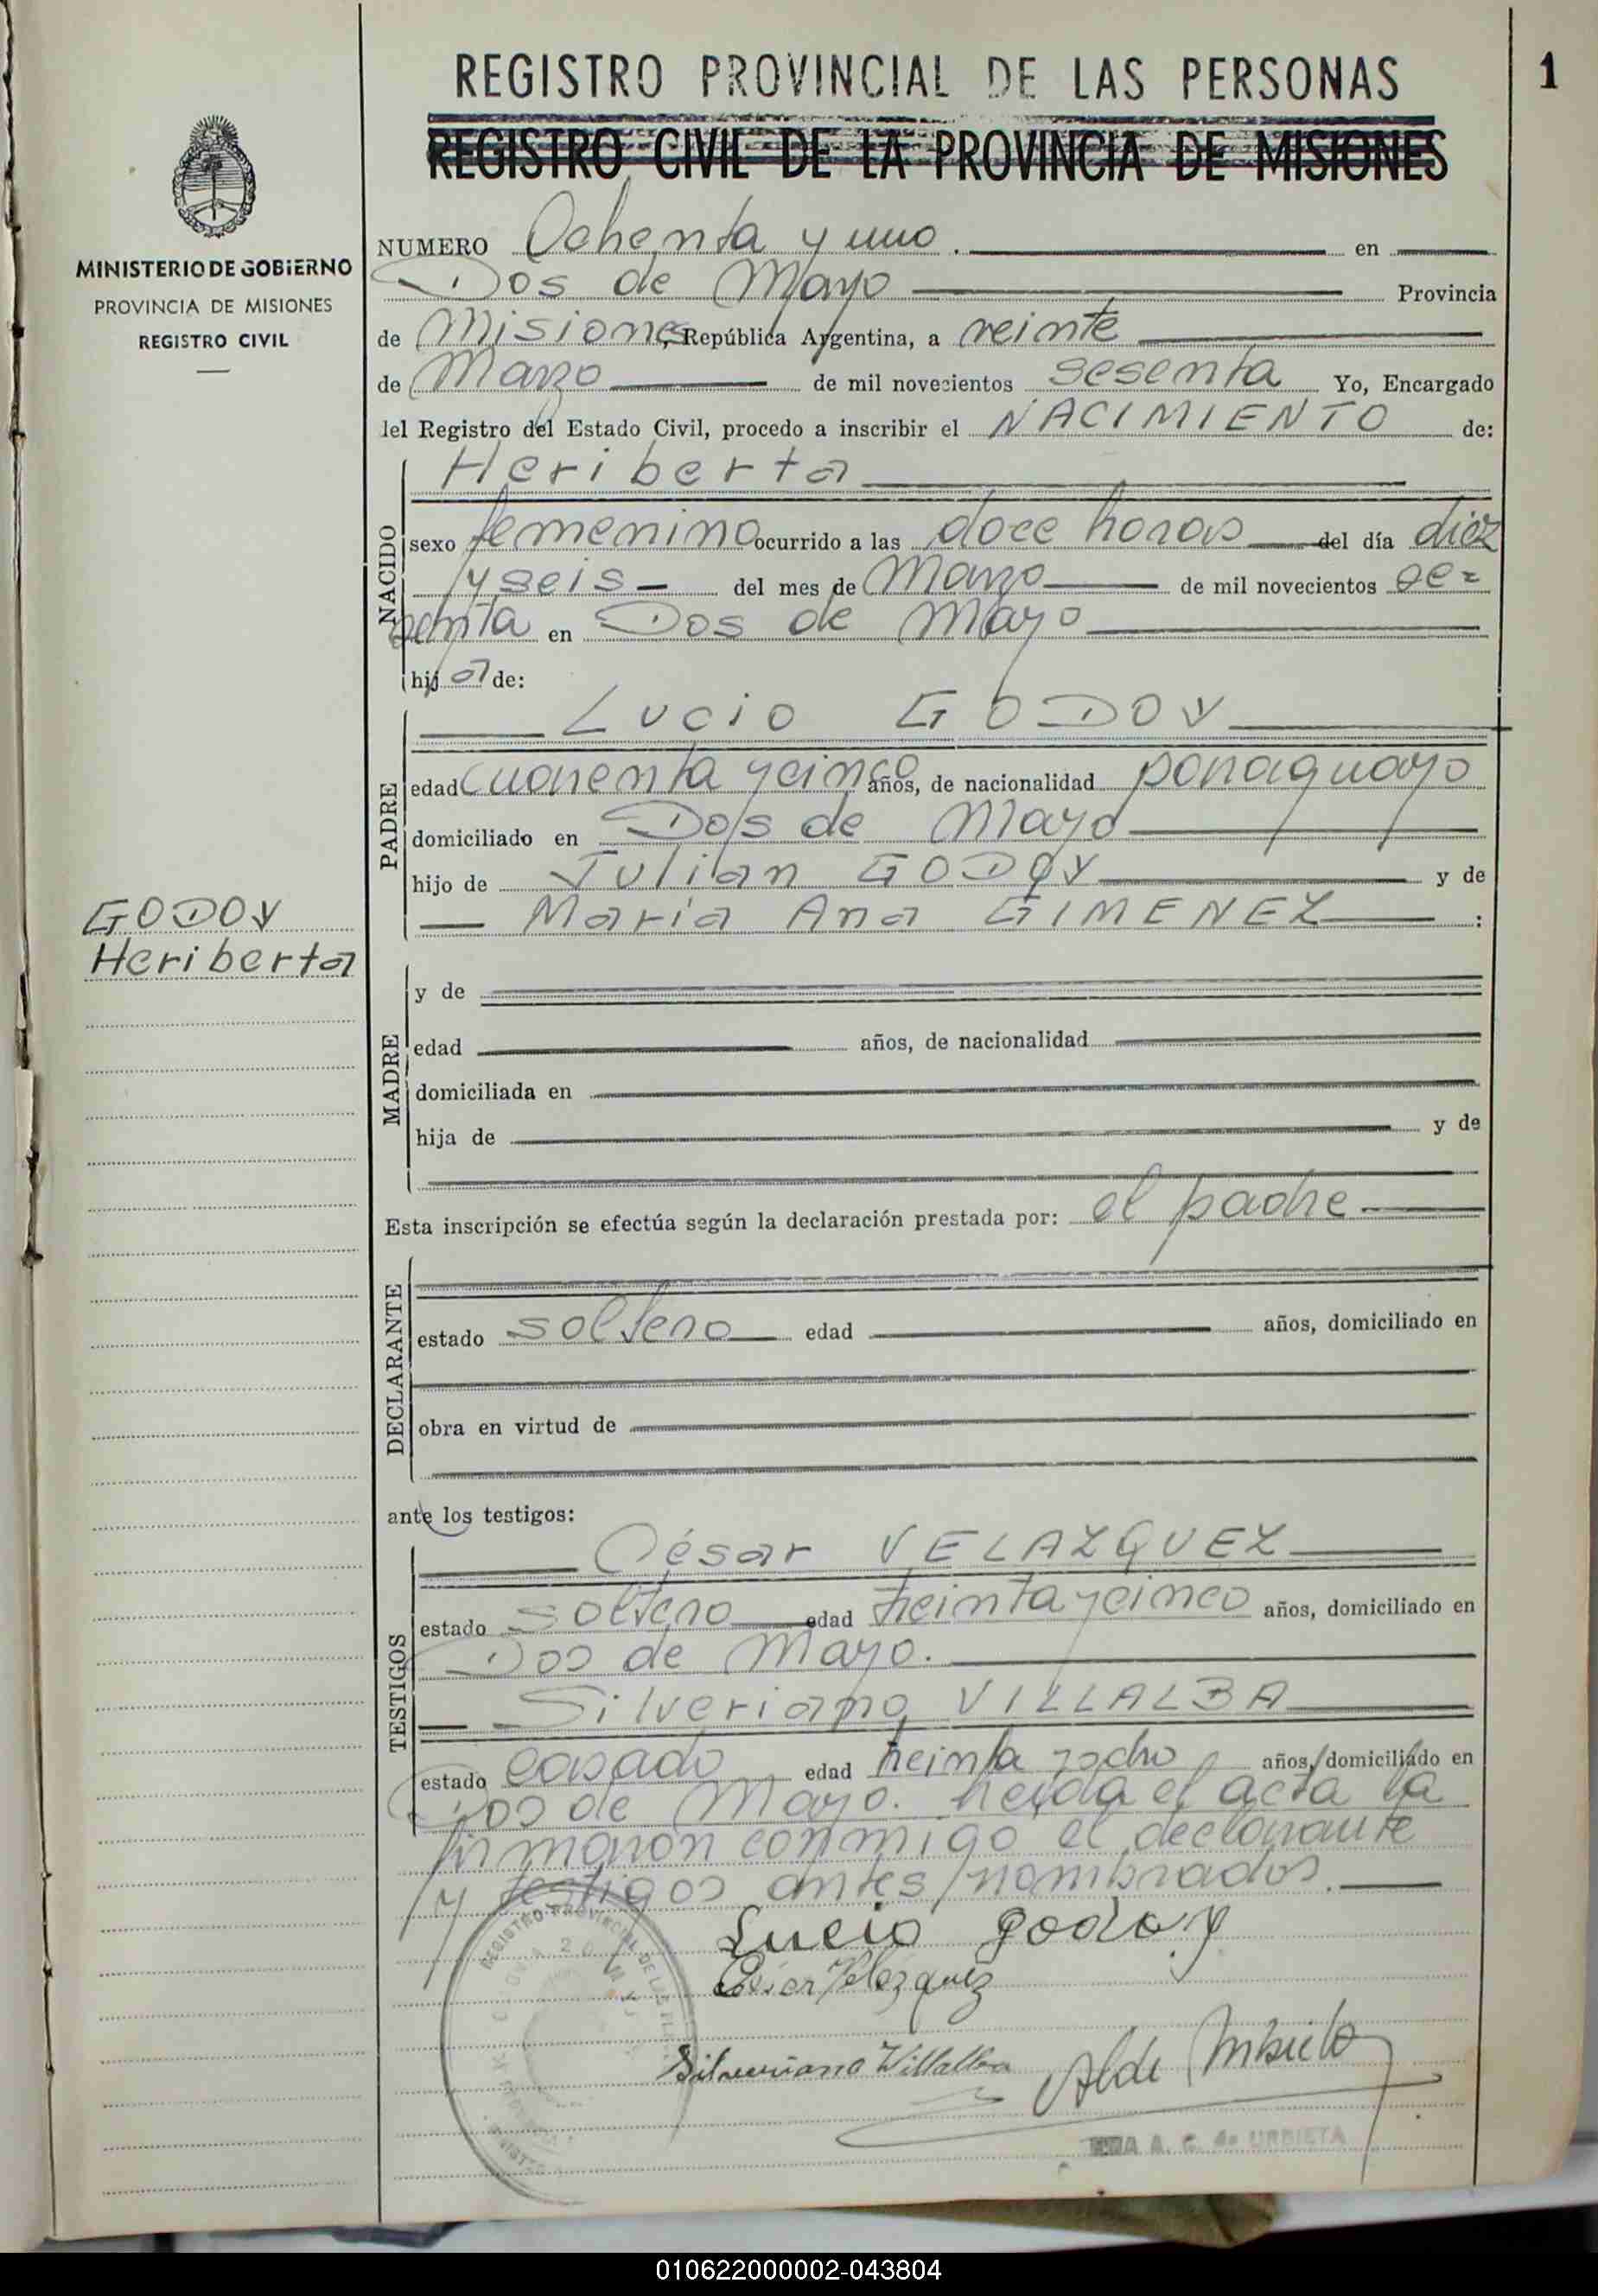 REGISTRO PROVINCIAL DE LAS PERSONAS
1
REGISTRO CIVIL DE LA PROVINCIA DE MISIONES
MINISTERIO DE GOBIERNO
PROVINCIA DE MISIONES
REGISTRO CIVIL
NUMERO Ochenta y uno. en
Dos de Mayo Provincia
de Misiones, República Argentina, a veinte
de Marzo de mil novecientos sesenta Yo, Encargado
del Registro del Estado Civil, procedo a inscribir el NACIMIENTO de:
NACIDO
Heriberta
sexo femenino ocurrido a las doce horas del día diez
y seis del mes de Marzo de mil novecientos se=
senta en Dos de Mayo
hija de:
PADRE
Lucio GODOY
edad cuarenta y cinco años, de nacionalidad paraguayo
domiciliado en Dos de Mayo
hijo de Julian GODOY y de
Maria Ana GIMENEZ :
GODOY
Heriberta
MADRE
y de
edad años, de nacionalidad
domiciliada en
hija de y de
Esta inscripción se efectúa según la declaración prestada por: el padre
DECLARANTE
estado soltero edad años, domiciliado en
obra en virtud de
ante los testigos:
TESTIGOS
César VELAZQUEZ
estado soltero edad treinta y cinco años, domiciliado en
Dos de Mayo.
Silveriano VILLALBA
estado casado edad treinta y ocho años, domiciliado en
Dos de Mayo. Leida el acta la
firmaron conmigo el declarante
y testigos antes nombrados.
REGISTRO PROVINCIAL DE LAS
Lucio godoy
Cesar Velazquez
Silveriano Villalba
A. C. de URBIETA
010622000002-043804